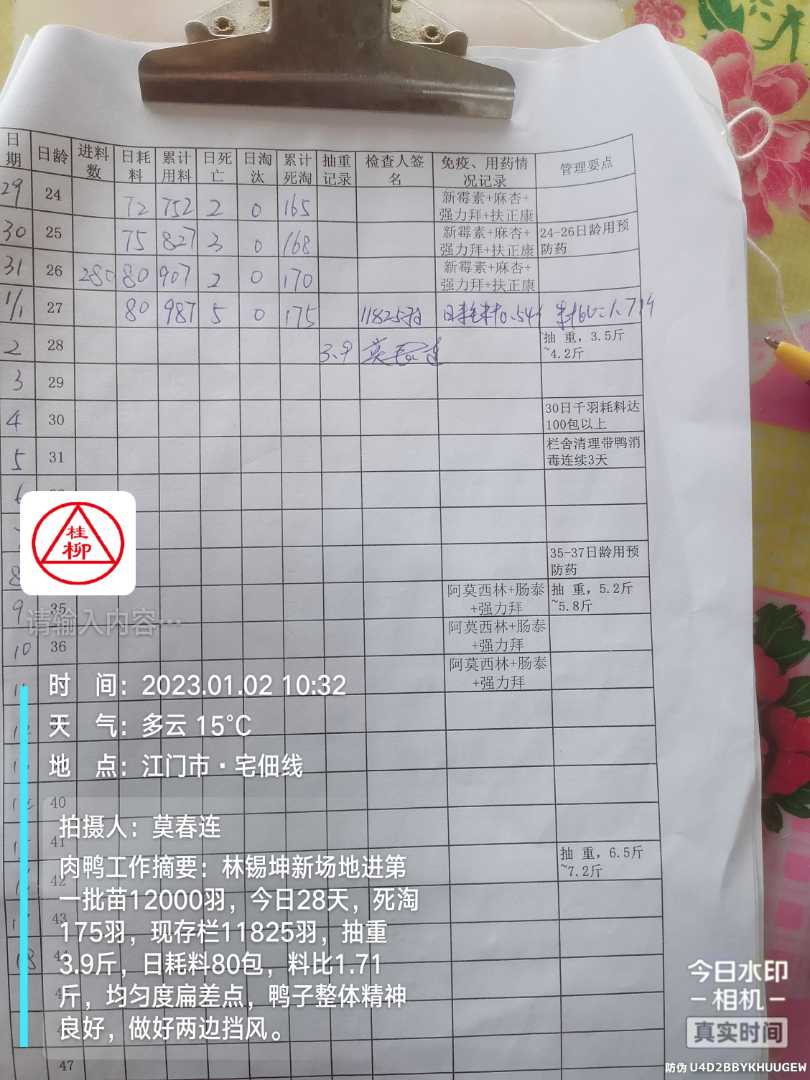 日期 日龄 进料数 日耗料 累计用料 日死亡 日淘汰 累计死淘 抽重记录 检查人签名 免疫、用药情况记录 管理要点
29 24 72 752 2 0 165 新霉素+麻杏+强力拜+扶正康
30 25 75 827 3 0 168 新霉素+麻杏+强力拜+扶正康 24-26日龄用预防药
31 26 280 80 907 2 0 170 新霉素+麻杏+强力拜+扶正康
1/1 27 80 987 5 0 175 11825羽 日耗料0.54
2 28 3.9 抽 重，3.5斤~4.2斤
3 29
4 30 30日千羽耗料达100包以上
5 31 栏舍清理带鸭消毒连续3天
6
桂柳
8 35-37日龄用预防药
9 35 阿莫西林+肠泰+强力拜 抽 重，5.2斤~5.8斤
请输入内容…
10 36 阿莫西林+肠泰+强力拜
阿莫西林+肠泰+强力拜
时 间：2023.01.02 10:32
天 气：多云 15℃
地 点：江门市·宅佃线
40
拍摄人：莫春连
41
肉鸭工作摘要：林锡坤新场地进第
一批苗12000羽，今日28天，死淘
175羽，现存栏11825羽，抽重
3.9斤，日耗料80包，料比1.71
斤，均匀度扁差点，鸭子整体精神
良好，做好两边挡风。
42 抽 重，6.5斤~7.2斤
43
18 44
47
今日水印
相机
真实时间
防伪 U4D2BBYKHUUGEW